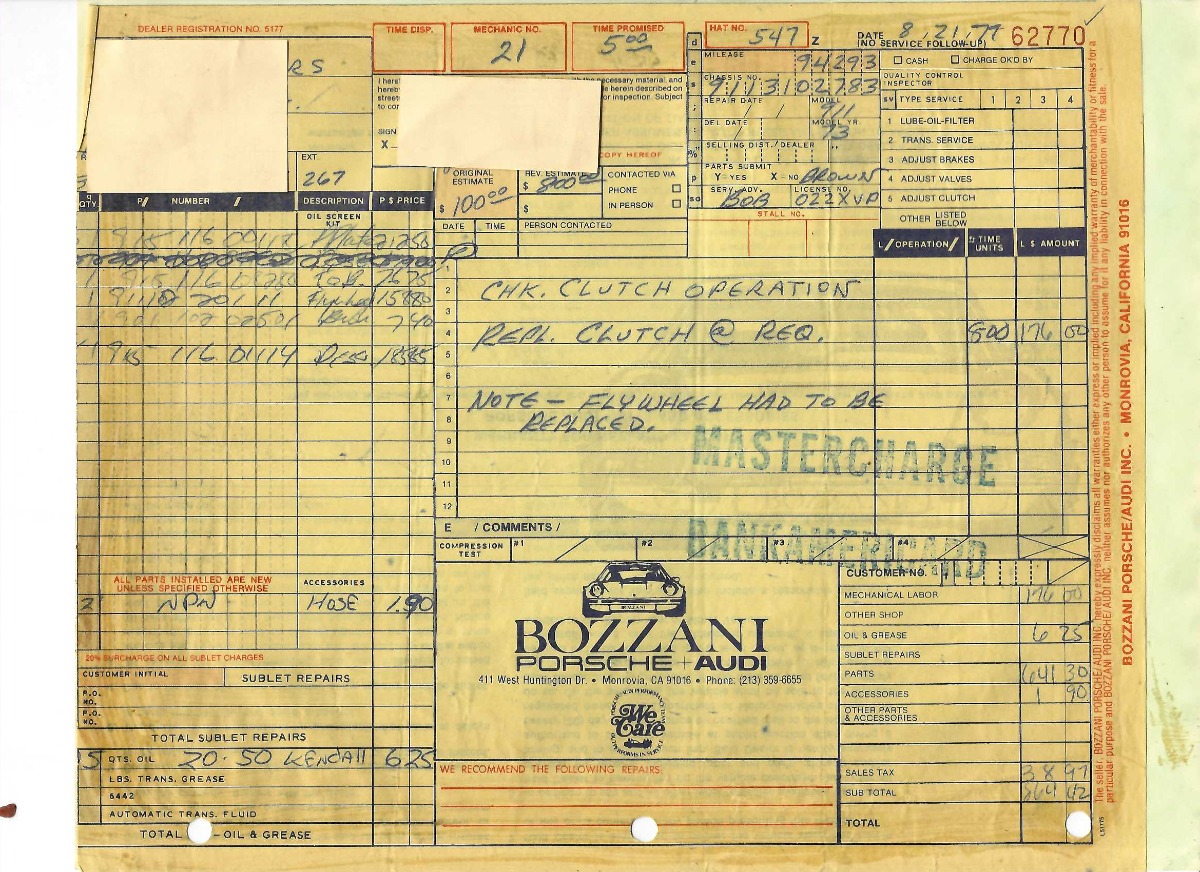 DEALER REGISTRATION NO. 5177
TIME DISP.
MECHANIC NO.
21
TIME PROMISED
5:00
HAT NO. 547
DATE 8.21.77
(NO SERVICE FOLLOW-UP)
62770
MILEAGE 94293
CASH
CHARGE OK'D BY
CHASSIS NO.
9113102783
QUALITY CONTROL
INSPECTOR
REPAIR DATE
MODEL
911
DEL. DATE
MODEL YR.
73
SELLING DIST./DEALER
PARTS SUBMIT
Y=YES X=NO BROWN
SERV. ADV.
BOB
LICENSE NO.
022XVP
STALL NO.
SV TYPE SERVICE 1 2 3 4
1 LUBE-OIL-FILTER
2 TRANS. SERVICE
3 ADJUST BRAKES
4 ADJUST VALVES
5 ADJUST CLUTCH
OTHER LISTED
BELOW
RS
I here
hereby
streets
to cor
necessary material, and
le herein described on
or inspection. Subject
SIGN
X
COPY HEREOF
EXT.
267
ORIGINAL
ESTIMATE
$ 100.00
REV. ESTIMATE
$ 800.00
$
CONTACTED VIA
PHONE
IN PERSON
DATE TIME PERSON CONTACTED
QTY P/ NUMBER / DESCRIPTION P $ PRICE
OIL SCREEN
KIT
L /OPERATION/ TIME UNITS L $ AMOUNT
1
2 CHK. CLUTCH OPERATION
3
4 REPL. CLUTCH @ REQ. 800 176 00
5
6
7 NOTE - FLYWHEEL HAD TO BE
8 REPLACED.
9
10
11
12
MASTERCHARGE
BANKAMERICARD
E / COMMENTS /
COMPRESSION
TEST
#1 #2 #3 #4
ALL PARTS INSTALLED ARE NEW
UNLESS SPECIFIED OTHERWISE
ACCESSORIES
2 NPN HOSE 1.90
20% SURCHARGE ON ALL SUBLET CHARGES
CUSTOMER INITIAL
SUBLET REPAIRS
P.O.
NO.
P.O.
NO.
TOTAL SUBLET REPAIRS
5 QTS. OIL 20-50 KENDALL 6.25
LBS. TRANS. GREASE
6442
AUTOMATIC TRANS. FLUID
TOTAL - OIL & GREASE
BOZZANI
BOZZANI
PORSCHE + AUDI
411 West Huntington Dr. • Monrovia, CA 91016 • Phone: (213) 359-6655
We
Care
WE RECOMMEND THE FOLLOWING REPAIRS:
CUSTOMER NO.
MECHANICAL LABOR 176 00
OTHER SHOP
OIL & GREASE 6 25
SUBLET REPAIRS
PARTS 641 30
ACCESSORIES 1 90
OTHER PARTS
& ACCESSORIES
SALES TAX 38 97
SUB TOTAL 864 42
TOTAL
The seller, BOZZANI PORSCHE/AUDI INC. hereby expressly disclaims all warranties either express or implied including any implied warranty of merchantability or fitness for a
particular purpose and BOZZANI PORSCHE/AUDI INC. neither assumes nor authorizes any other person to assume for it any liability in connection with the sale.
BOZZANI PORSCHE/AUDI INC. • MONROVIA, CALIFORNIA 91016